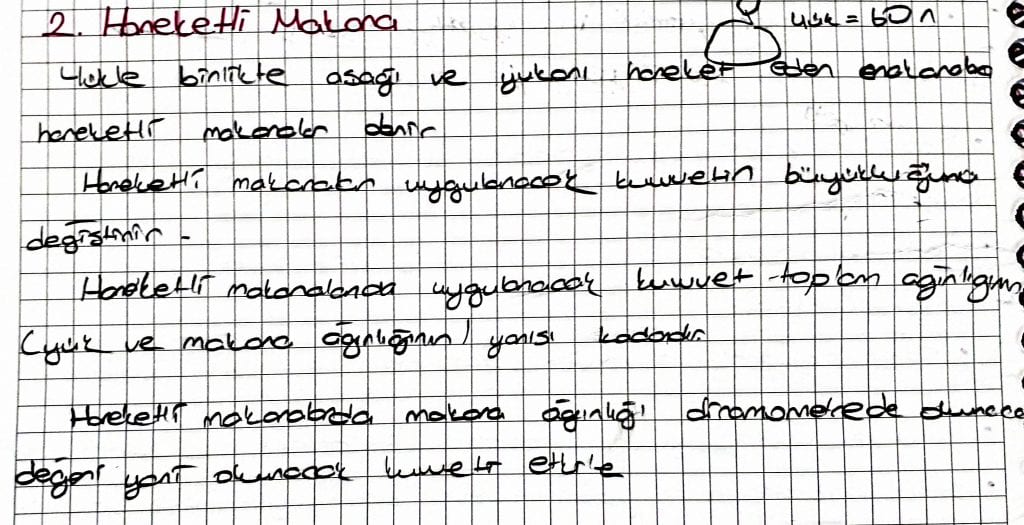 2. Hareketli Makara
yük = 60 n
Yükle binlikte asağı ve yukarı hareket eden makaralara
hareketli makaralar denir
Hareketli makaralar uygulanacak kuvvetin büyüklüğünü
değiştirir.
Hareketli makaralarda uygulanacak kuvvet toplam ağırlığın
(yük ve makara ağırlığının) yarısı kadardır.
Hareketli makaralarda makara ağırlığı dinamometrede okunaca
değeri yani okunacak kuvveti etkile